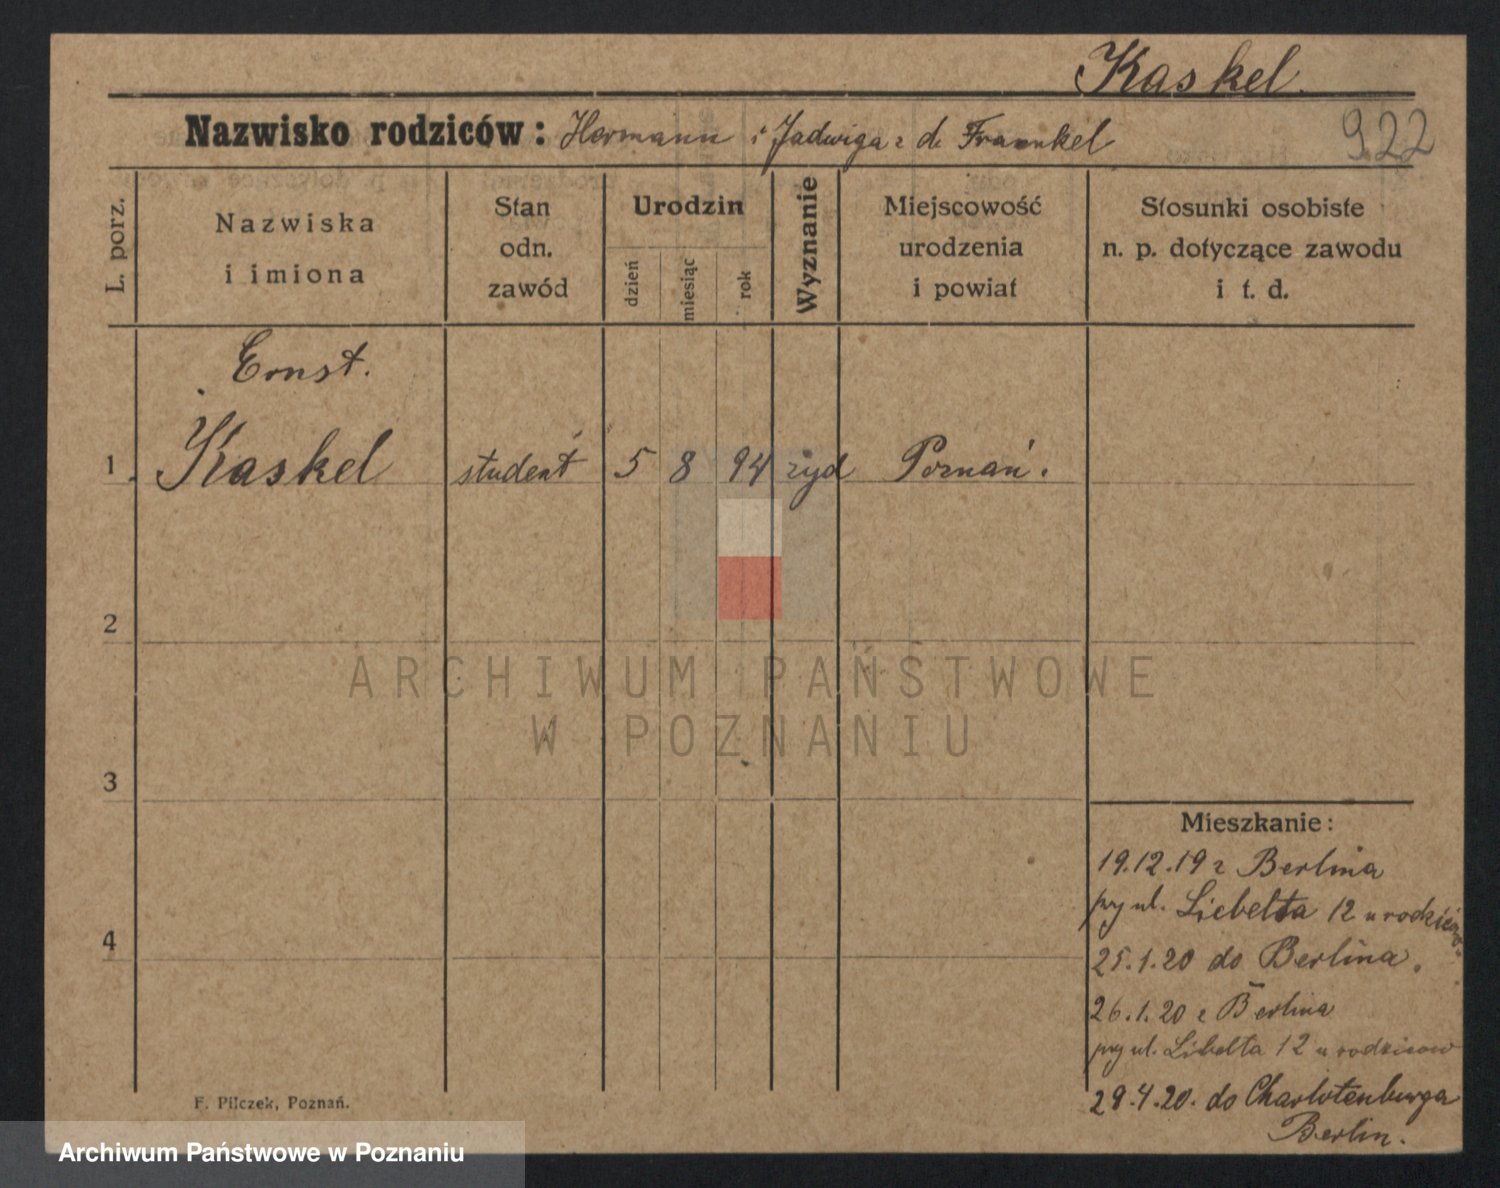 Kaskel.
Nazwisko rodziców: Hermann i Jadwiga z d. Fraenkel
922
L. porz.
Nazwiska
i imiona
Stan
odn.
zawód
Urodzin
dzień
miesiąc
rok
Wyznanie
Miejscowość
urodzenia
i powiat
Stosunki osobiste
n. p. dotyczące zawodu
i t. d.
Ernst.
1. Kaskel student 5 8 94 żyd Poznań.
2
3
4
Mieszkanie:
19.12.19 z Berlina
przy ul. Liebelta 12 u rodziców
25.1.20 do Berlina.
26.1.20 z Berlina
przy ul. Libelta 12 u rodziców
29.4.20. do Charlotenburga
Berlin.
F. Pilczek, Poznań.
ARCHIWUM PAŃSTWOWE
W POZNANIU
Archiwum Państwowe w Poznaniu